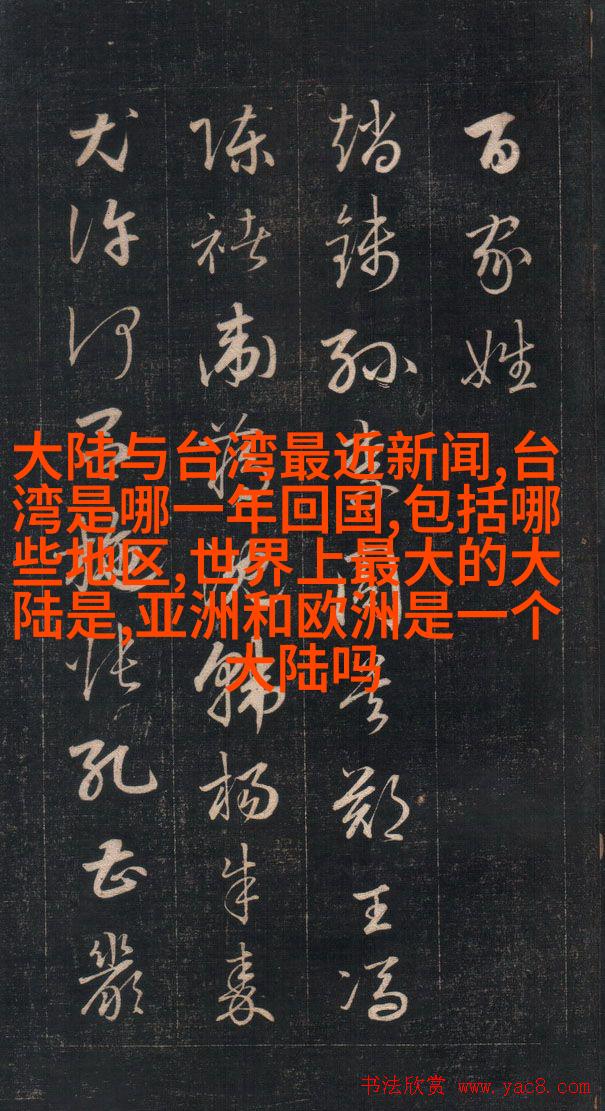 百家姓
趙錢孫周吳鄭王馮
陳褚衛蔣韓楊朱秦
尤許何吕施張孔曹嚴
大陆与台湾最近新闻,台
湾是哪一年回国,包括哪
些地区,世界上最大的大
陆是,亚洲和欧洲是一个
大陆吗
书法欣赏 www.yac8.com